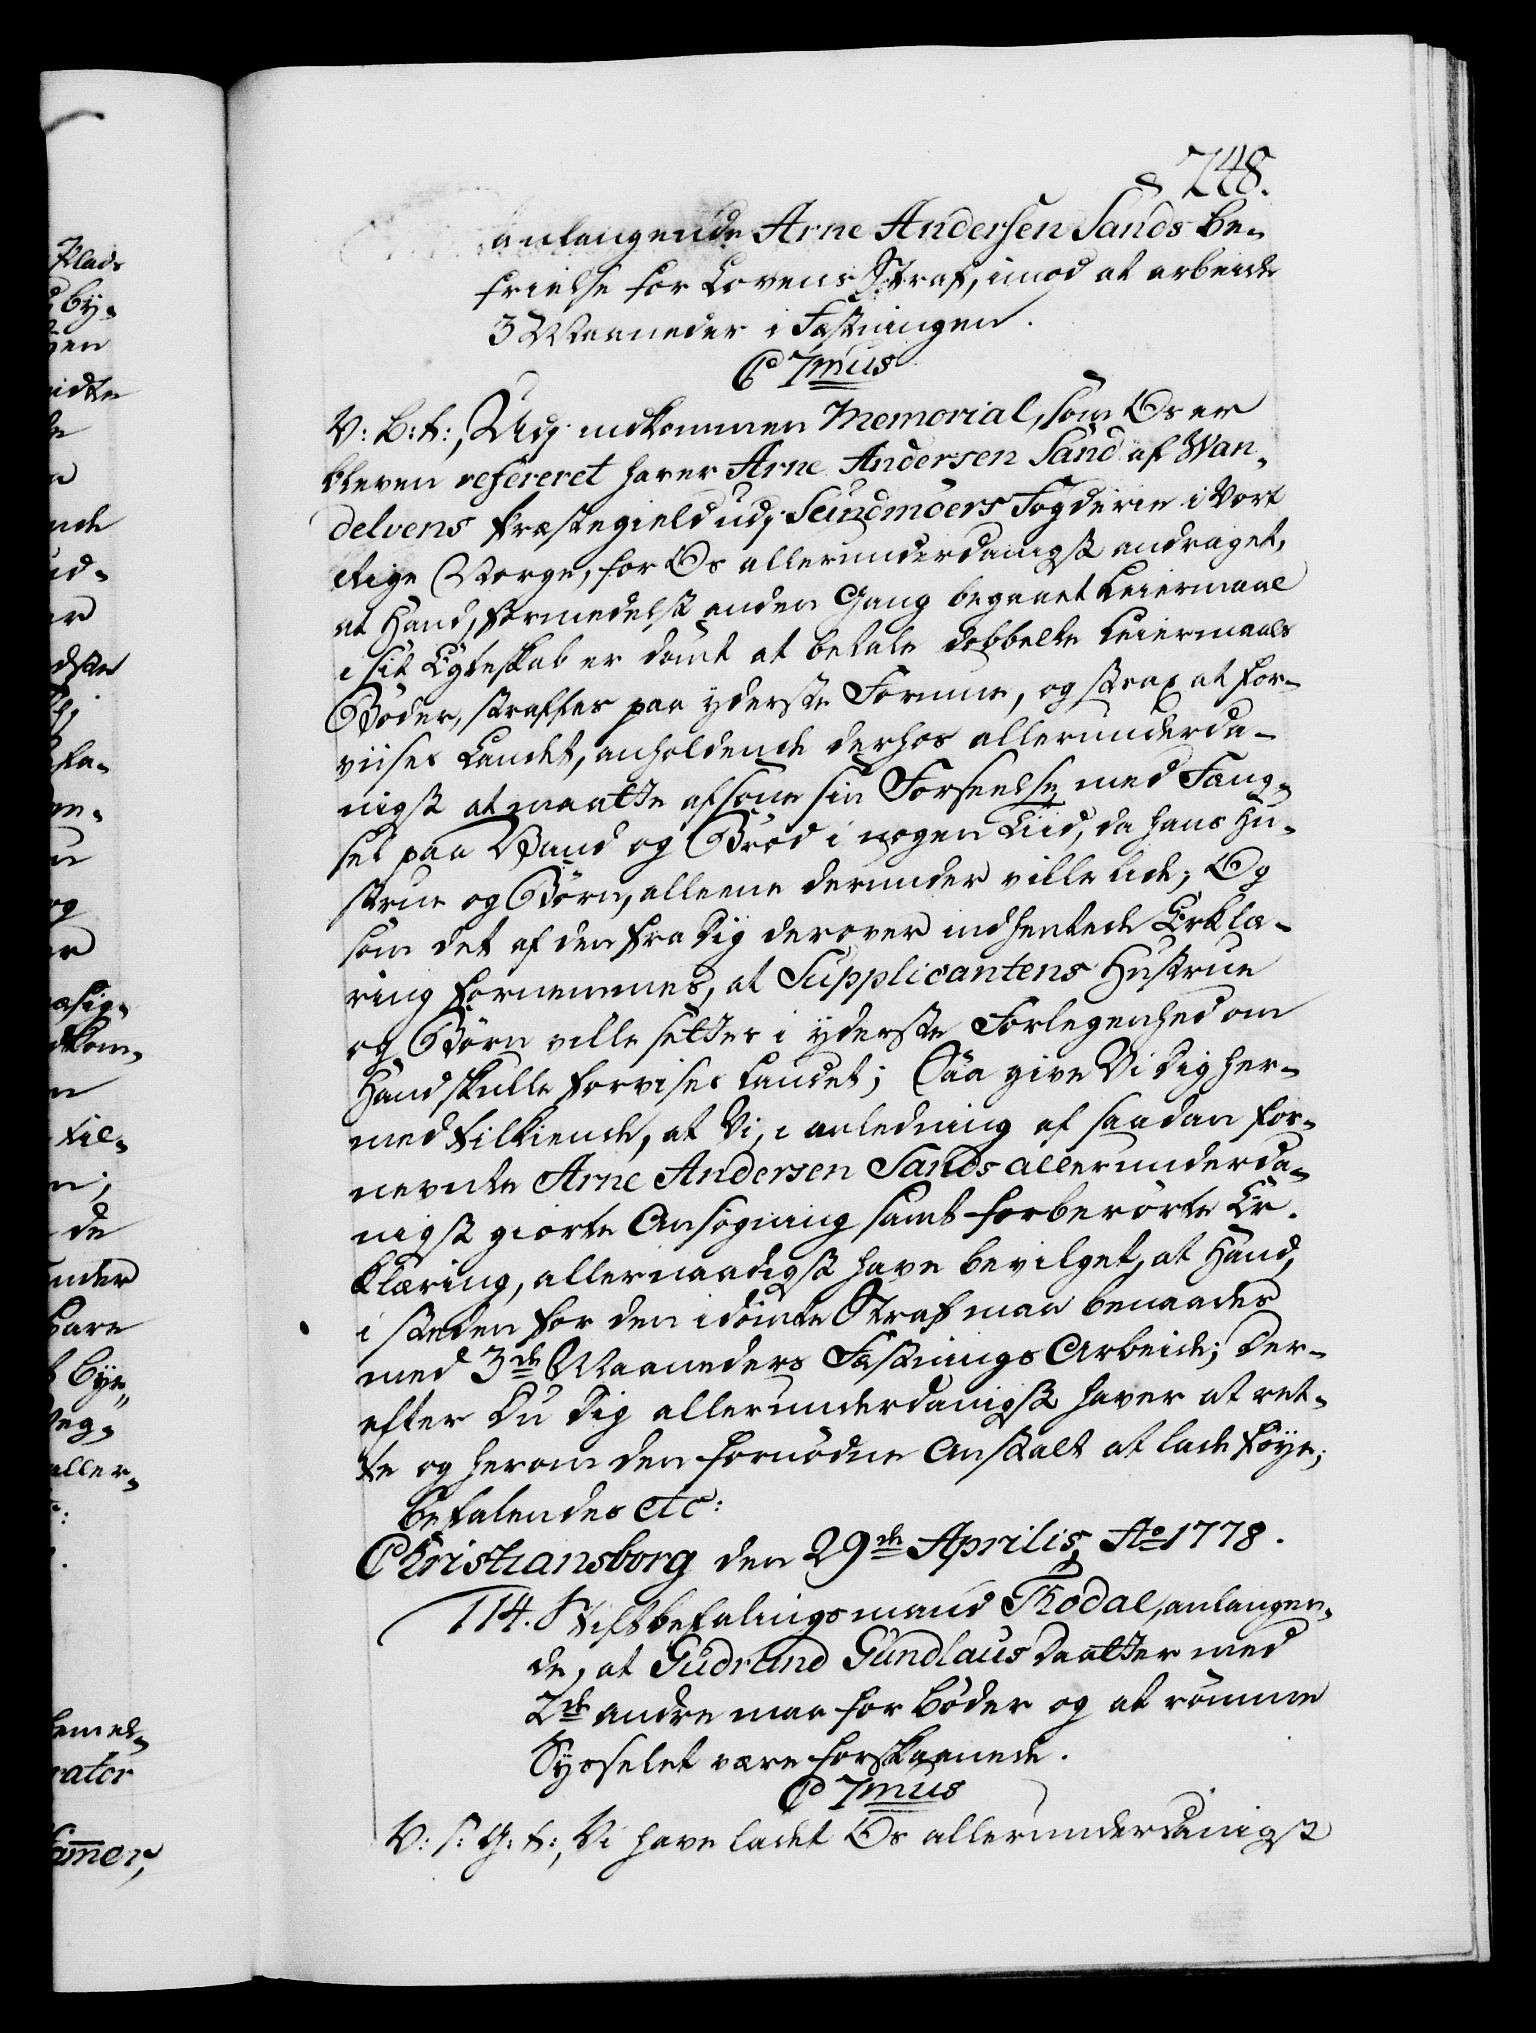 748.
anlangende Arne Andersen Sands be-
frielse for Lovens Straf, imod at arbeide
3 Maaneder i Fæstningen.
C 7mus
V: B: t:, Udj indkommen Memorial, som Os er
bleven refereret haver Arne Andersen Sand af Wan-
delvens Præstegield udj Sundmöers Fogderie i Vort
Rige Norge, for Os allerunderdanigst andraget,
at Hand, formedelst anden Gang begaaet Leiermaal
i sit Egteskab er dömt at betale dobbelte Leiermaals
Böder, straffes paa yderste Formue, og strax at for-
viises Landet, anholdende derhos allerunderda-
nigst at maatte afsone sin Forseelse med Fæng-
sel paa Vand og Bröd i nogen Tiid, da hans Hu-
strue og Börn, alleene derunder ville lide; Og
som det af den fra Dig derover indhentede Erklæ-
ring fornemmes, at Supplicantens Hustrue
og Börn ville settes i yderste Forlegenhed om
Hand skulle forvises Landet; Saa give Vi Dig her-
med tilkiende, at Vi, i anledning af saadan for-
nevnte Arne Andersen Sands allerunderda-
nigst giorte Ansögning samt forberörte Er-
klæring, allernaadigst have bevilget, at Hand,
i steden for den idömte Straf maa benaades
med 3de Maaneders Fæstnings Arbeide; Der-
efter Du Dig allerunderdanigst haver at ret-
te og herom den fornödne Anstalt at lade föye;
befalendes etc:
Christiansborg den 29de Aprilis, Ao 1778.
114. Stiftbefalingsmand Thodal, anlangen-
de, at Gudrund Gundlaus Daatter med
2de andre maa for Böder og at römme
Sysselet være forskaanede.
C 7mus
V: s: G: t:, Vi have ladet Os allerunderdanigst